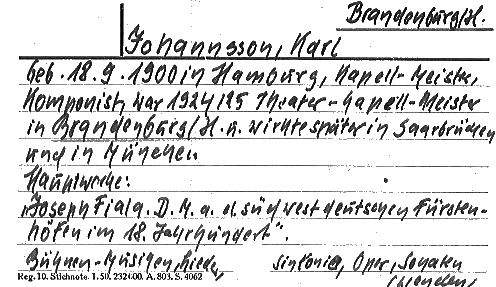 Brandenburg/H.
Johannsson, Karl
Geb. 18.9.1900 in Hamburg, Kapell-Meister,
Komponist, war 1924/25 Theater-Kapell-Meister
in Brandenburg/H. u. wirkte später in Saarbrücken
und in München
Hauptwerke:
"Joseph Fiala. D. M. a. d. südwestdeutschen Fürsten-
höfen im 18. Jahrhundert".
Bühnen-Musiken, Lieder, Sinfonie, Oper, Sonaten
Reg. 10. Stichnote. 1. 50. 232600. A. 803. S. 4062
(wenden)